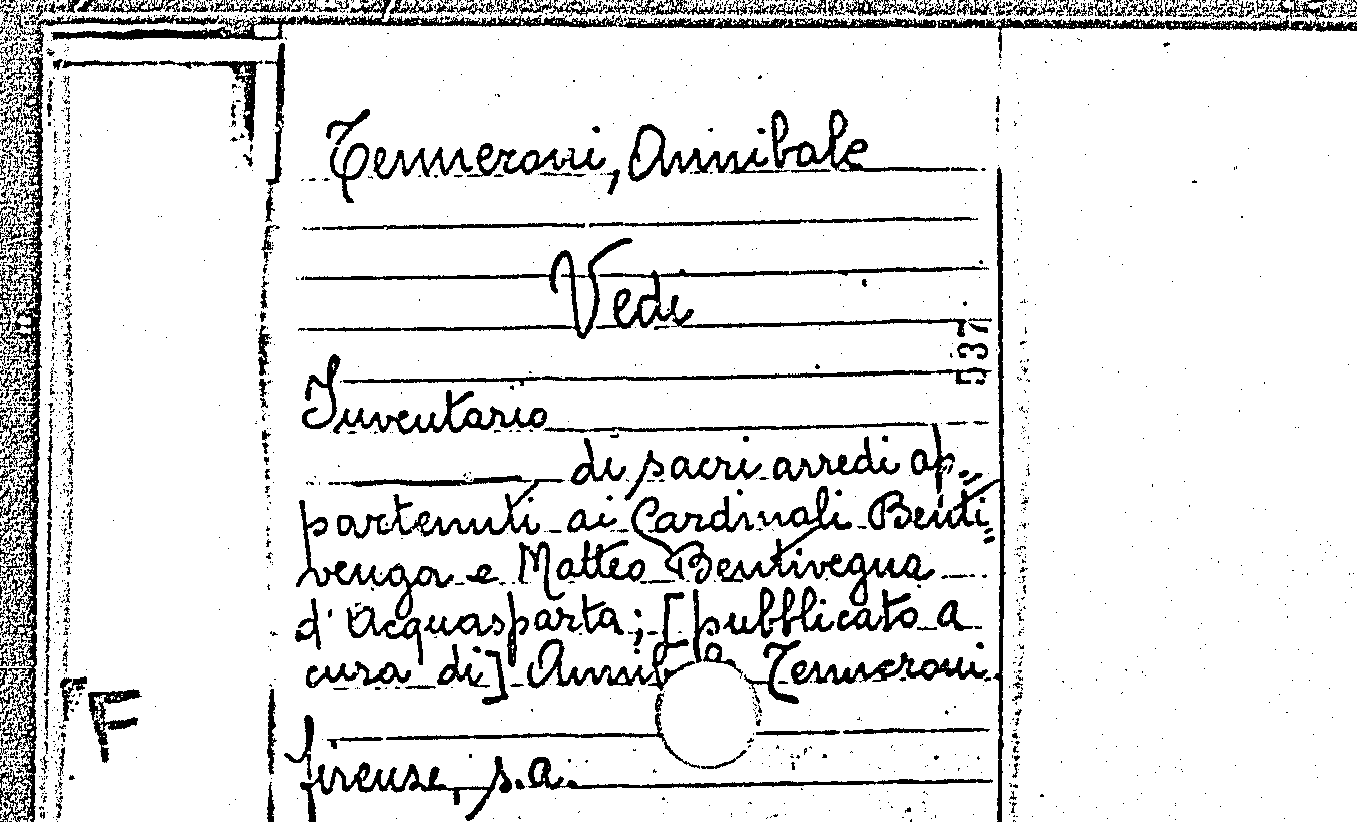 Tenneroni, Annibale
Vedi
537
Inventario
di sacri arredi ap„
partenuti ai Cardinali Benti„
venga e Matteo Bentivegna
d'Acquasparta; [pubblicato a
cura di] Tenneroni.
Firenze, s.a.
F